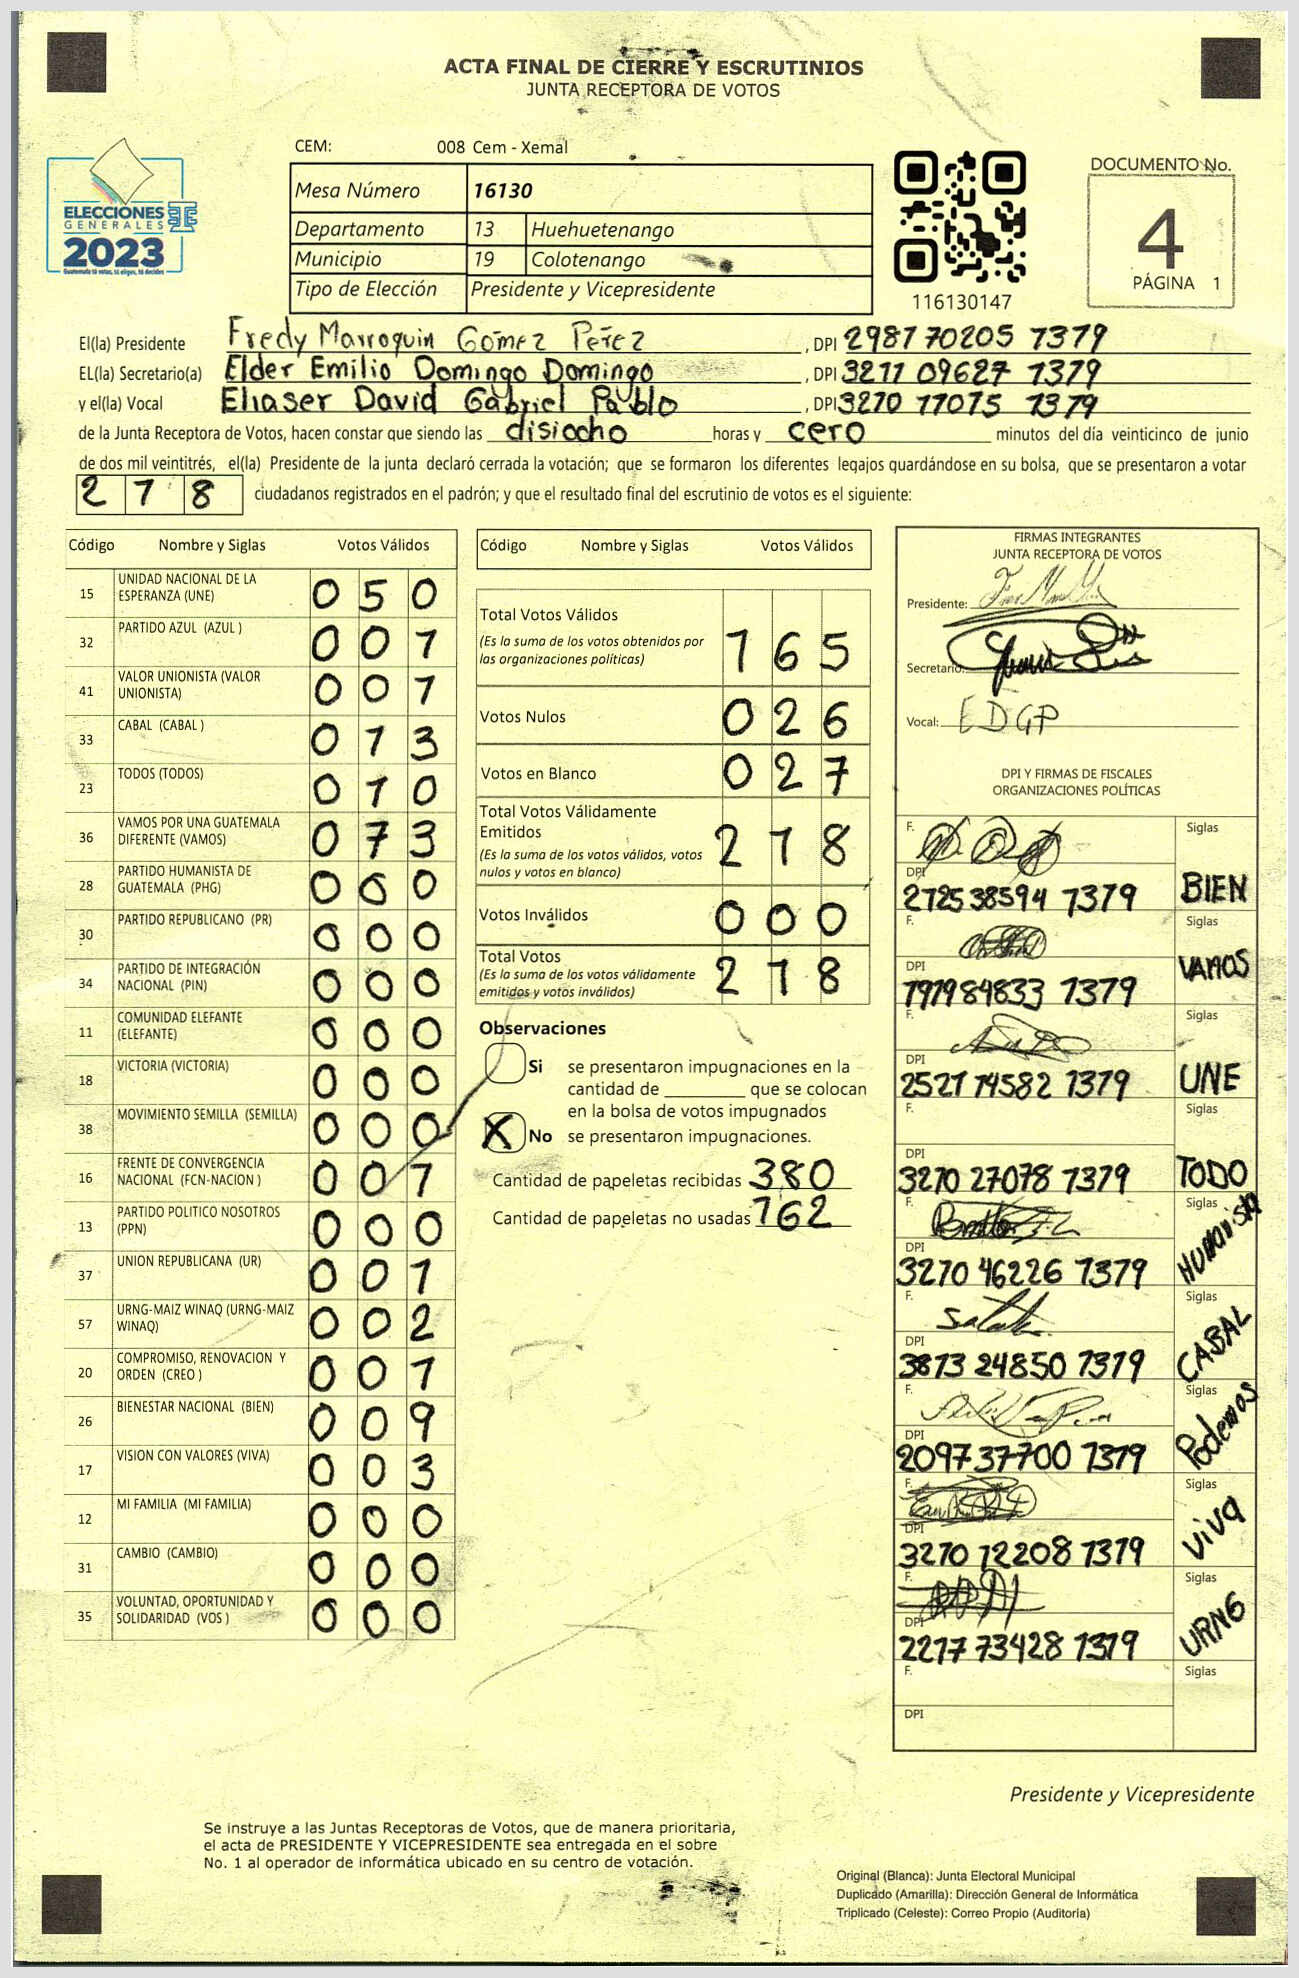 ACTA FINAL DE CIERRE Y ESCRUTINIOS
JUNTA RECEPTORA DE VOTOS
CEM: 008 Cem - Xemal
ELECCIONES
GENERALES
2023
Guatemala tú votas, tú eliges, tú decides
Mesa Número 16130
Departamento 13 Huehuetenango
Municipio 19 Colotenango
Tipo de Elección Presidente y Vicepresidente
116130147
DOCUMENTO No.
4
PÁGINA 1
El(la) Presidente Fredy Marroquin Gómez Pérez, DPI 2981 70205 1319
EL(la) Secretario(a) Elder Emilio Domingo Domingo, DPI 3211 09627 1319
y el(la) Vocal Eliaser David Gabriel Pablo, DPI 3210 11015 1319
de la Junta Receptora de Votos, hacen constar que siendo las disiocho horas y cero minutos del día veinticinco de junio
de dos mil veintitrés, el(la) Presidente de la junta declaró cerrada la votación; que se formaron los diferentes legajos guardándose en su bolsa, que se presentaron a votar
218 ciudadanos registrados en el padrón; y que el resultado final del escrutinio de votos es el siguiente:
Código Nombre y Siglas Votos Válidos
15 UNIDAD NACIONAL DE LA ESPERANZA (UNE) 050
32 PARTIDO AZUL (AZUL ) 001
41 VALOR UNIONISTA (VALOR UNIONISTA) 001
33 CABAL (CABAL ) 013
23 TODOS (TODOS) 010
36 VAMOS POR UNA GUATEMALA DIFERENTE (VAMOS) 073
28 PARTIDO HUMANISTA DE GUATEMALA (PHG) 000
30 PARTIDO REPUBLICANO (PR) 000
34 PARTIDO DE INTEGRACIÓN NACIONAL (PIN) 000
11 COMUNIDAD ELEFANTE (ELEFANTE) 000
18 VICTORIA (VICTORIA) 000
38 MOVIMIENTO SEMILLA (SEMILLA) 000
16 FRENTE DE CONVERGENCIA NACIONAL (FCN-NACION ) 001
13 PARTIDO POLITICO NOSOTROS (PPN) 000
37 UNION REPUBLICANA (UR) 001
57 URNG-MAIZ WINAQ (URNG-MAIZ WINAQ) 002
20 COMPROMISO, RENOVACION Y ORDEN (CREO ) 001
26 BIENESTAR NACIONAL (BIEN) 009
17 VISION CON VALORES (VIVA) 003
12 MI FAMILIA (MI FAMILIA) 000
31 CAMBIO (CAMBIO) 000
35 VOLUNTAD, OPORTUNIDAD Y SOLIDARIDAD (VOS ) 000
Código Nombre y Siglas Votos Válidos
Total Votos Válidos
(Es la suma de los votos obtenidos por las organizaciones politicas) 165
Votos Nulos 026
Votos en Blanco 027
Total Votos Válidamente Emitidos
(Es la suma de los votos válidos, votos nulos y votos en blanco) 218
Votos Inválidos 000
Total Votos
(Es la suma de los votos válidamente emitidos y votos inválidos) 218
Observaciones
Si se presentaron impugnaciones en la
cantidad de ________ que se colocan
en la bolsa de votos impugnados
X No se presentaron impugnaciones.
Cantidad de papeletas recibidas 380
Cantidad de papeletas no usadas 162
FIRMAS INTEGRANTES
JUNTA RECEPTORA DE VOTOS
Presidente:
Secretario:
Vocal: EDGP
DPI Y FIRMAS DE FISCALES
ORGANIZACIONES POLÍTICAS
F. Siglas
DPI 2725 38594 1319 BIEN
F. Siglas
DPI 1919 84833 1319 VAMOS
F. Siglas
DPI 2521 14582 1319 UNE
F. Siglas
DPI 3210 21078 1319 TODO
F. Siglas
DPI 3210 46226 1319 HUMANista
F. Siglas
3813 24850 1319 CABAL
DPI
F. Siglas
DPI 2097 37700 1319 Podemos
F. Siglas
DPI 3210 12208 1319 VIVA
F. Siglas
DPI 2217 73428 1319 URNG
F. Siglas
DPI
Presidente y Vicepresidente
Se instruye a las Juntas Receptoras de Votos, que de manera prioritaria,
el acta de PRESIDENTE Y VICEPRESIDENTE sea entregada en el sobre
No. 1 al operador de informática ubicado en su centro de votación.
Original (Blanca): Junta Electoral Municipal
Duplicado (Amarilla): Dirección General de Informática
Triplicado (Celeste): Correo Propio (Auditoría)